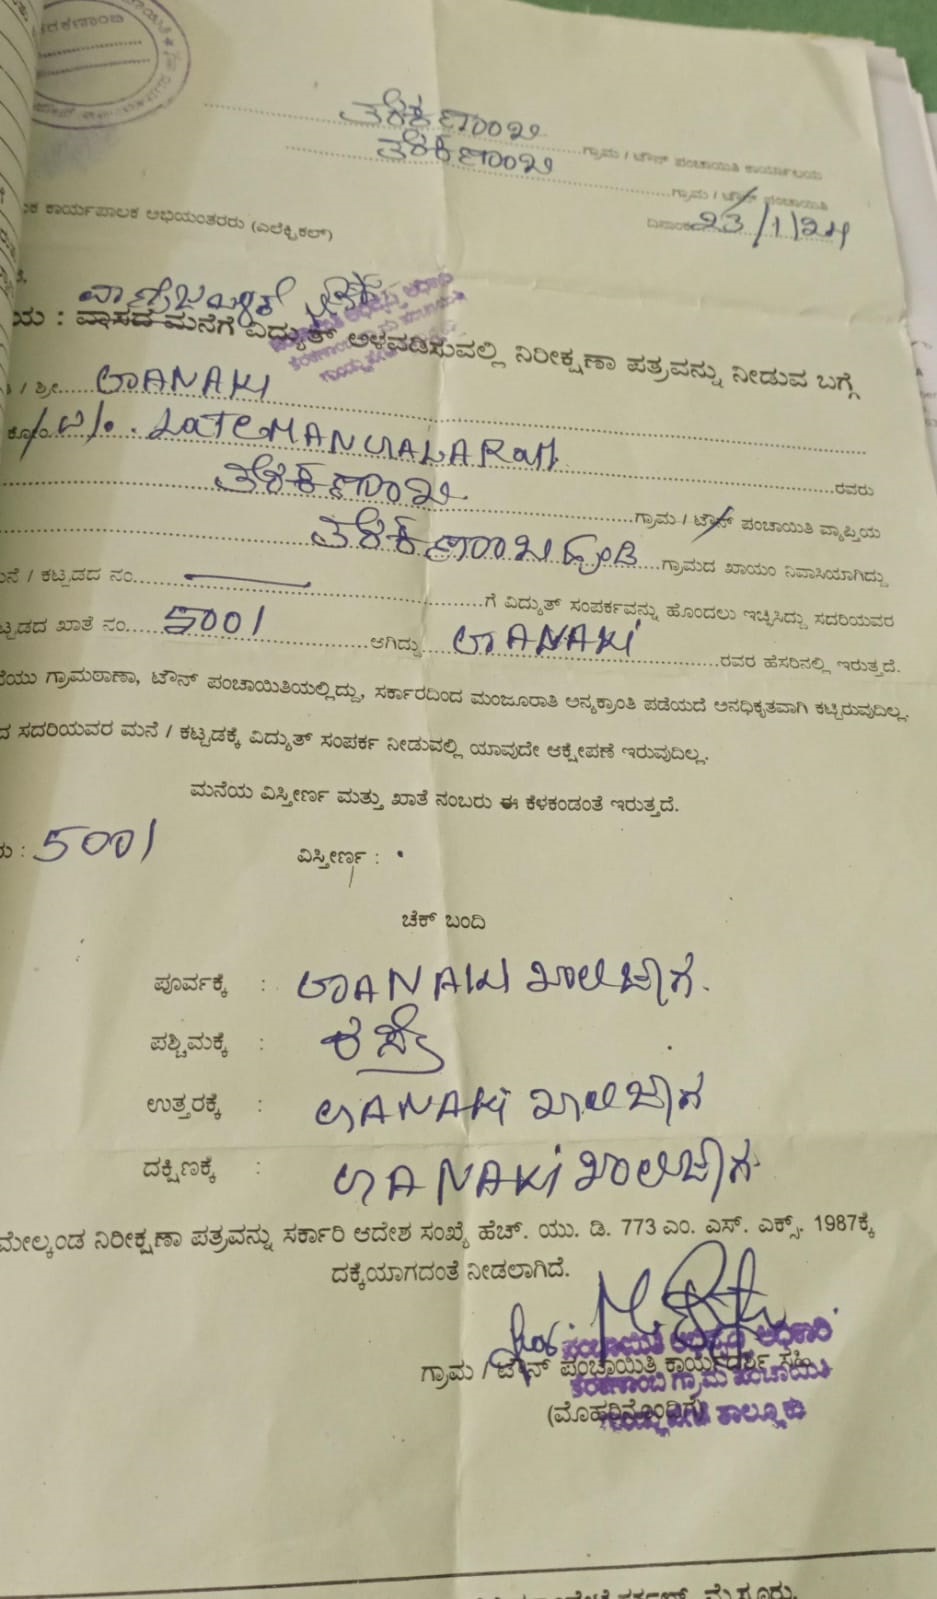 ತೆರಕಣಾಂಬಿ
ತೆರಕಣಾಂಬಿ ಗ್ರಾಮ / ಟೌನ್ ಪಂಚಾಯಿತಿ ಕಾರ್ಯಾಲಯ
ಗ್ರಾಮ / ಟೌನ್ ಪಂಚಾಯಿತಿ
ದಿನಾಂಕ 23/1/24
ಕಾರ್ಯಪಾಲಕ ಅಭಿಯಂತರರು (ಎಲೆಕ್ಟ್ರಿಕಲ್)
ವಾಸದ ಮನೆಗೆ ವಿದ್ಯುತ್ ಅಳವಡಿಸುವಲ್ಲಿ ನಿರೀಕ್ಷಣಾ ಪತ್ರವನ್ನು ನೀಡುವ ಬಗ್ಗೆ
/ ಶ್ರೀ JANAKI
LATE MANGALARAM
ರವರು
ತೆರಕಣಾಂಬಿ ಗ್ರಾಮ / ಟೌನ್ ಪಂಚಾಯಿತಿ ವ್ಯಾಪ್ತಿಯ
ತೆರಕಣಾಂಬಿ ಹುಂಡಿ ಗ್ರಾಮದ ಖಾಯಂ ನಿವಾಸಿಯಾಗಿದ್ದು
/ ಕಟ್ಟಡದ ನಂ. ಗೆ ವಿದ್ಯುತ್ ಸಂಪರ್ಕವನ್ನು ಹೊಂದಲು ಇಚ್ಛಿಸಿದ್ದು ಸದರಿಯವರ
ಖಾತೆ ನಂ. 5001 ಆಗಿದ್ದು JANAKI ರವರ ಹೆಸರಿನಲ್ಲಿ ಇರುತ್ತದೆ.
ಗ್ರಾಮಠಾಣಾ, ಟೌನ್ ಪಂಚಾಯಿತಿಯಲ್ಲಿದ್ದು, ಸರ್ಕಾರದಿಂದ ಮಂಜೂರಾತಿ ಅನ್ಯಕ್ರಾಂತಿ ಪಡೆಯದೆ ಅನಧಿಕೃತವಾಗಿ ಕಟ್ಟಿರುವುದಿಲ್ಲ.
ಸದರಿಯವರ ಮನೆ / ಕಟ್ಟಡಕ್ಕೆ ವಿದ್ಯುತ್ ಸಂಪರ್ಕ ನೀಡುವಲ್ಲಿ ಯಾವುದೇ ಆಕ್ಷೇಪಣೆ ಇರುವುದಿಲ್ಲ.
ಮನೆಯ ವಿಸ್ತೀರ್ಣ ಮತ್ತು ಖಾತೆ ನಂಬರು ಈ ಕೆಳಕಂಡಂತೆ ಇರುತ್ತದೆ.
: 5001 ವಿಸ್ತೀರ್ಣ :
ಚೆಕ್ ಬಂದಿ
ಪೂರ್ವಕ್ಕೆ : JANAKI ಖಾಲಿ ಜಾಗ.
ಪಶ್ಚಿಮಕ್ಕೆ : ರಸ್ತೆ
ಉತ್ತರಕ್ಕೆ : JANAKI ಖಾಲಿ ಜಾಗ
ದಕ್ಷಿಣಕ್ಕೆ : JANAKI ಖಾಲಿ ಜಾಗ.
ಮೇಲ್ಕಂಡ ನಿರೀಕ್ಷಣಾ ಪತ್ರವನ್ನು ಸರ್ಕಾರಿ ಆದೇಶ ಸಂಖ್ಯೆ ಹೆಚ್. ಯು. ಡಿ. 773 ಎಂ. ಎಸ್. ಎಕ್ಸ್. 1987ಕ್ಕೆ
ದಕ್ಕೆಯಾಗದಂತೆ ನೀಡಲಾಗಿದೆ.
ಪಂಚಾಯಿತಿ ಅಭಿವೃದ್ಧಿ ಅಧಿಕಾರಿ
ಗ್ರಾಮ / ಟೌನ್ ಪಂಚಾಯಿತಿ ಕಾರ್ಯದರ್ಶಿ ಸಹಿ
ತೆರಕಣಾಂಬಿ ಗ್ರಾಮ ಪಂಚಾಯಿತಿ
(ಮೊಹರಿನೊಂದಿಗೆ)
ತಾಲ್ಲೂಕು
ಮೈಸೂರು.